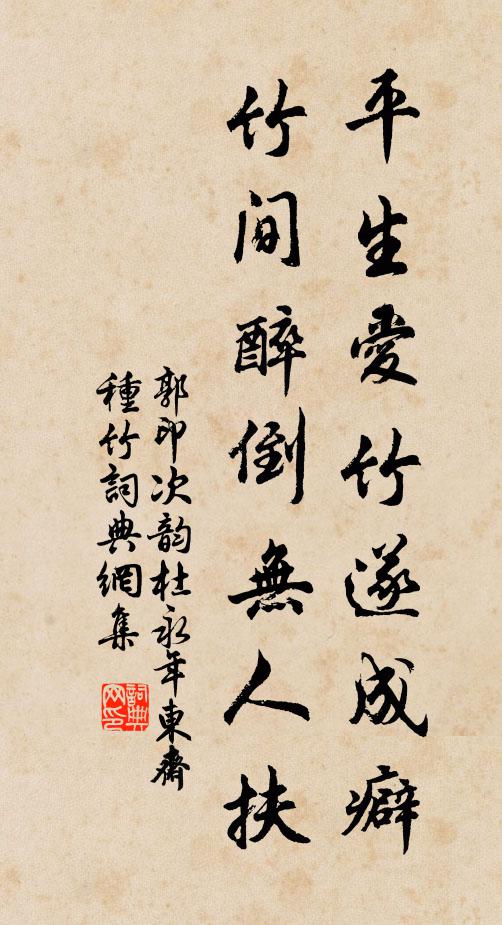 平生愛竹遂成癖
竹间醉倒無人扶
郭印次韵杜永年東齋
種竹詞典網集
詞典网印